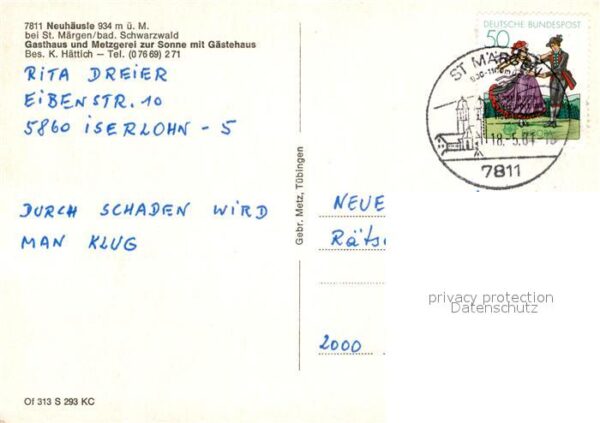 7811 Neuhäusle 934 m ü. M.
bei St. Märgen/bad. Schwarzwald
Gasthaus und Metzgerei zur Sonne mit Gästehaus
Bes. K. Hättich – Tel. (07669) 271
RITA DREIER
EIBENSTR. 10
5860 ISERLOHN - 5
DURCH SCHADEN WIRD
MAN KLUG
Of 313 S 293 KC
Gebr. Metz, Tübingen
DEUTSCHE BUNDESPOST
50
ST. MÄRGEN
7811
NEUE
Räts
2000
privacy protection
Datenschutz